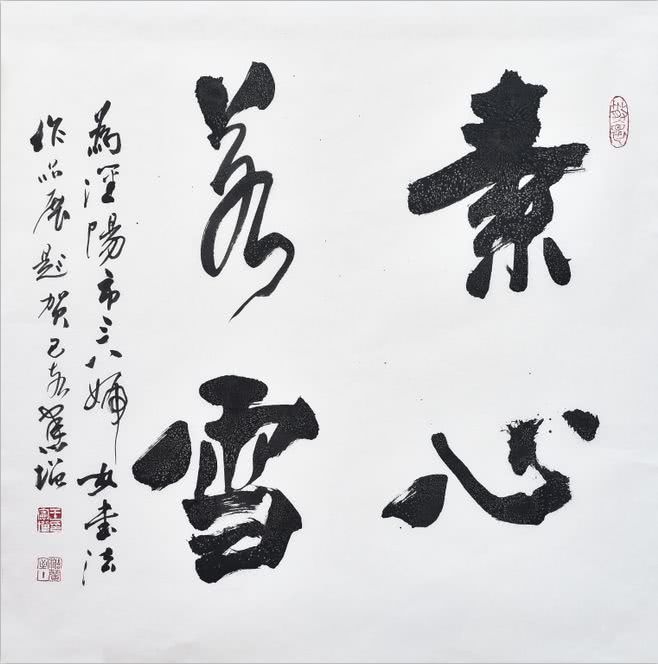 素心
若雪
為陽市三八婦女書法
作品展题贺己亥